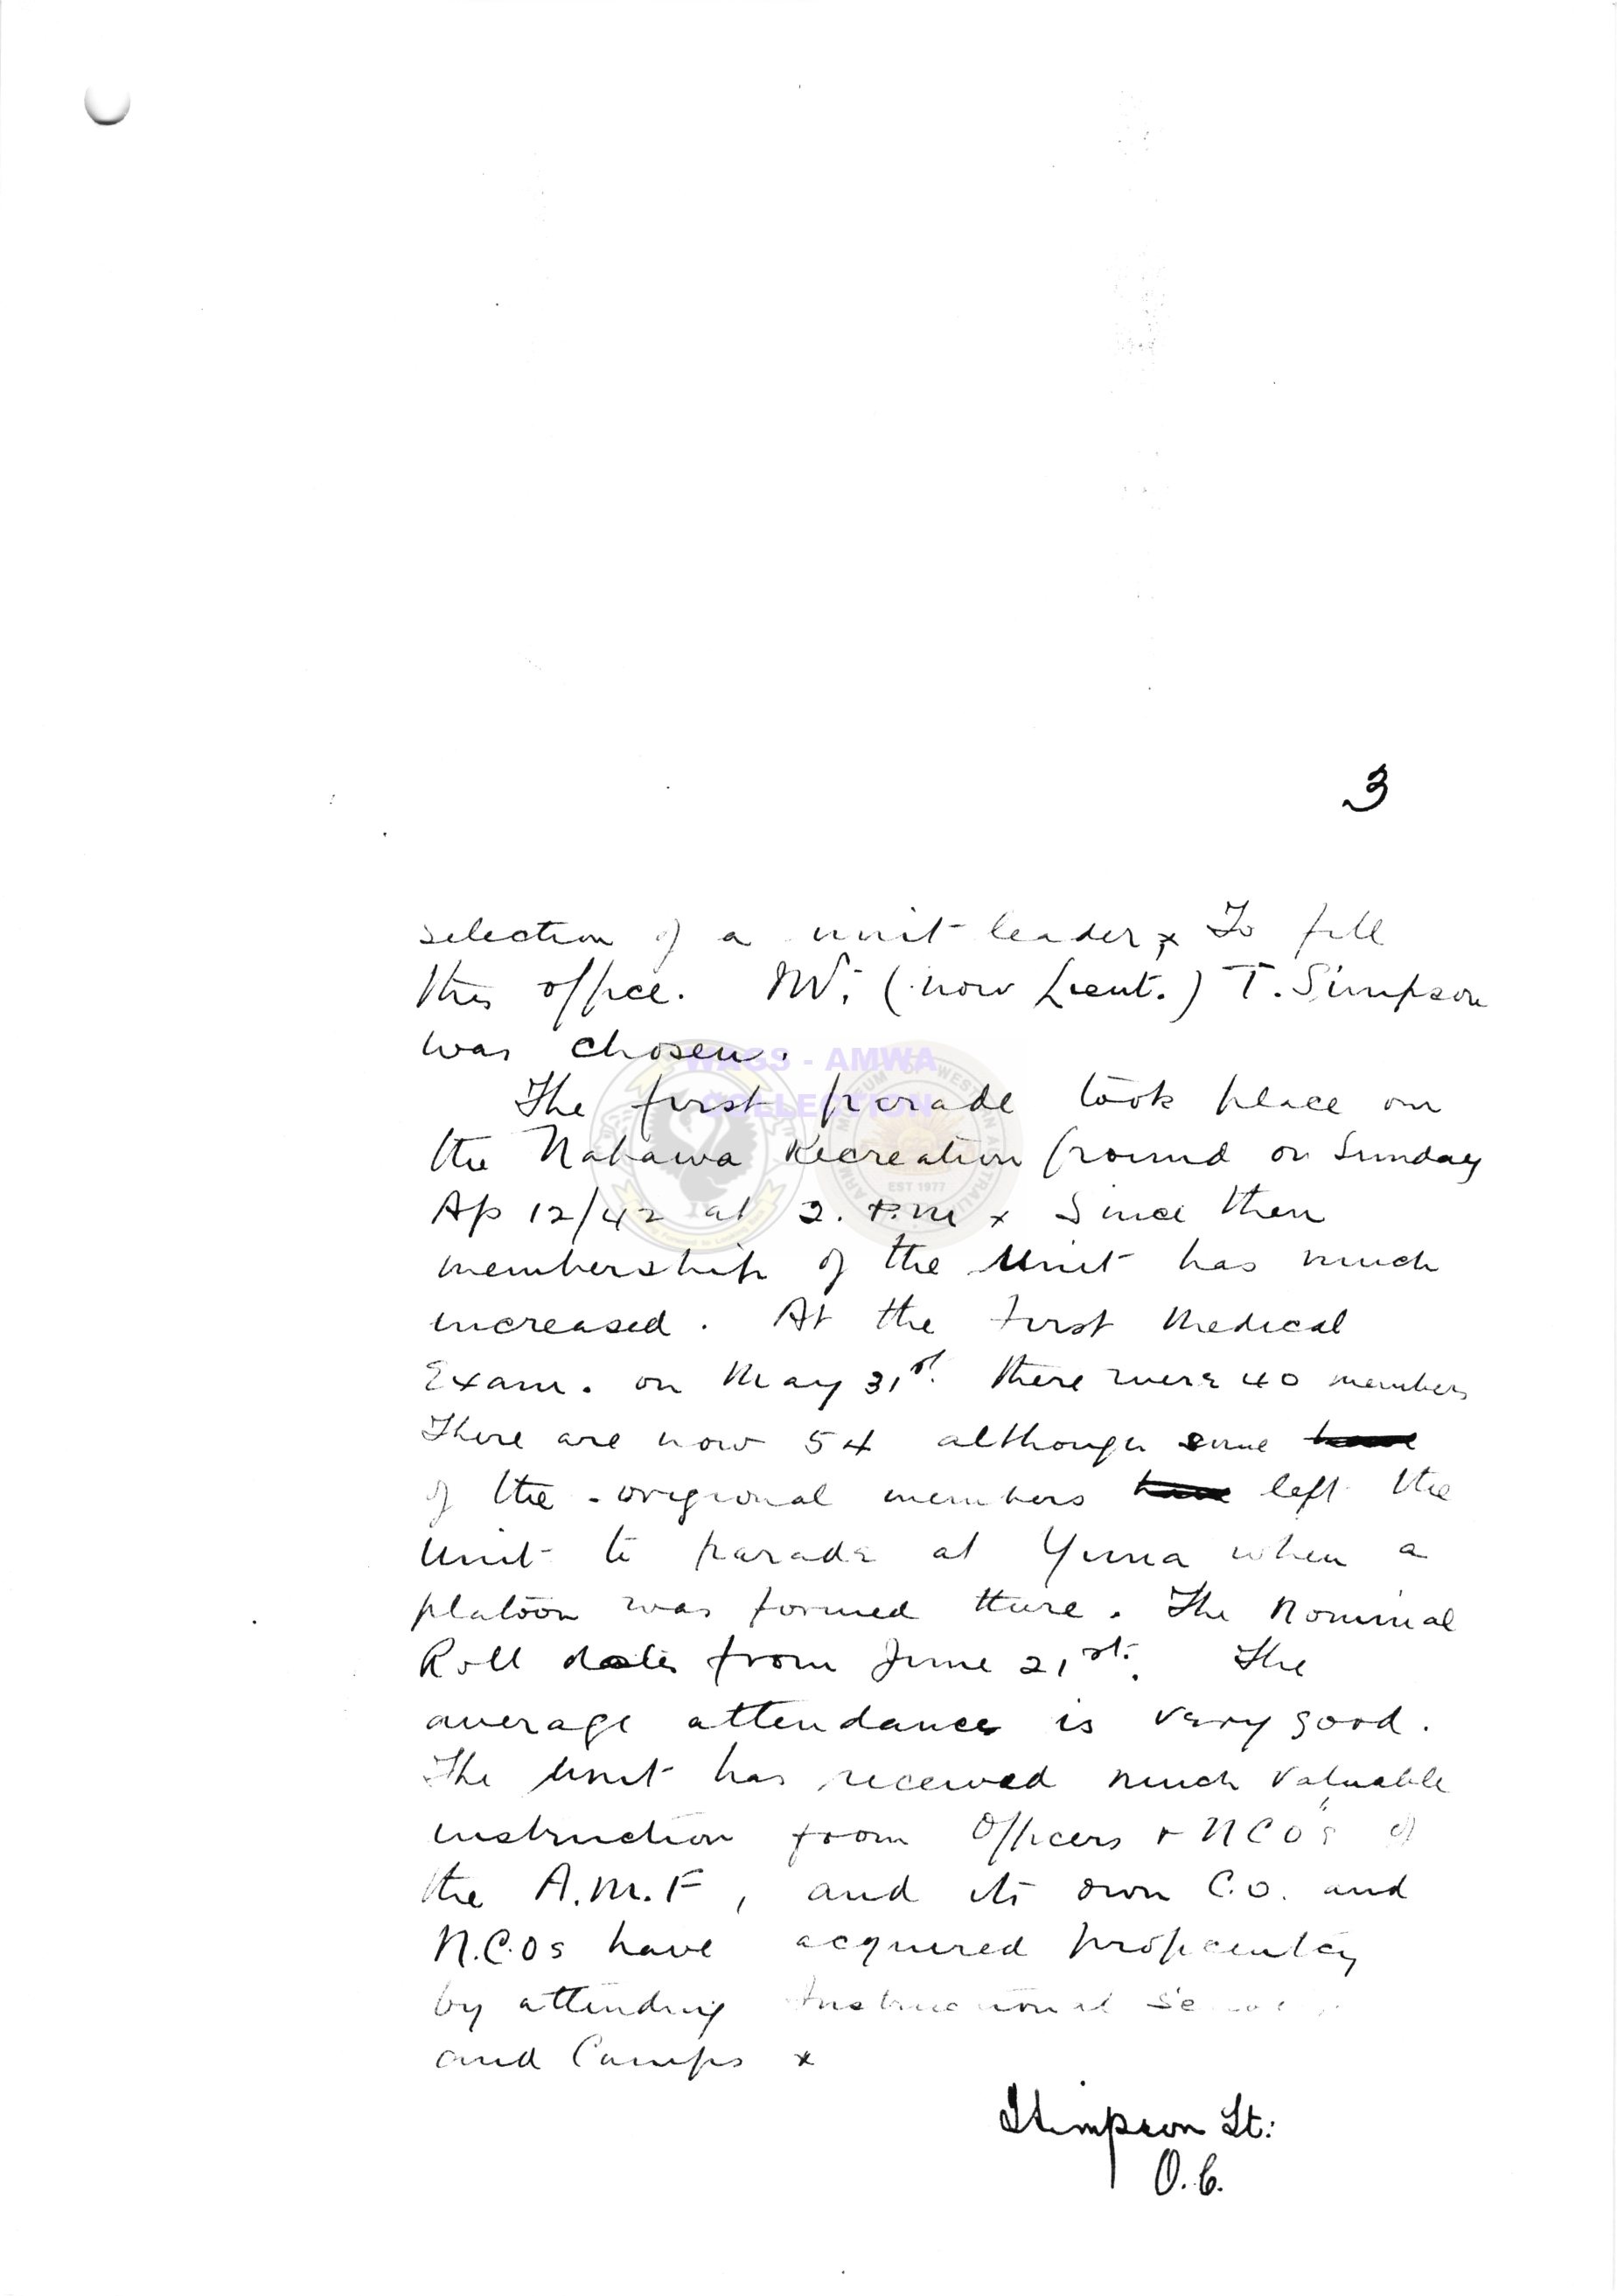 3
selection of a unit leader x To fill
this office. Mr. (now Lieut.) T. Simpson
was chosen.
WAGS - AMWA
COLLECTION
The first parade took place on
the Nabawa Recreation Ground on Sunday
Ap 12/42 at 2. P.M x Since then
membership of the Unit has much
increased. At the first Medical
Exam. on May 31st. there were 40 members
There are now 54 although some
of the original members left the
Unit to parade at Yuna when a
platoon was formed there. The Nominal
Roll dates from June 21st. The
average attendance is very good.
The Unit has received much valuable
instruction from Officers + NCO's of
the A.M.F, and its own C.O. and
N.C.Os have acquired
by attending Instructional
and Camps x
TSimpson Lt:
O.C.
EST 1977